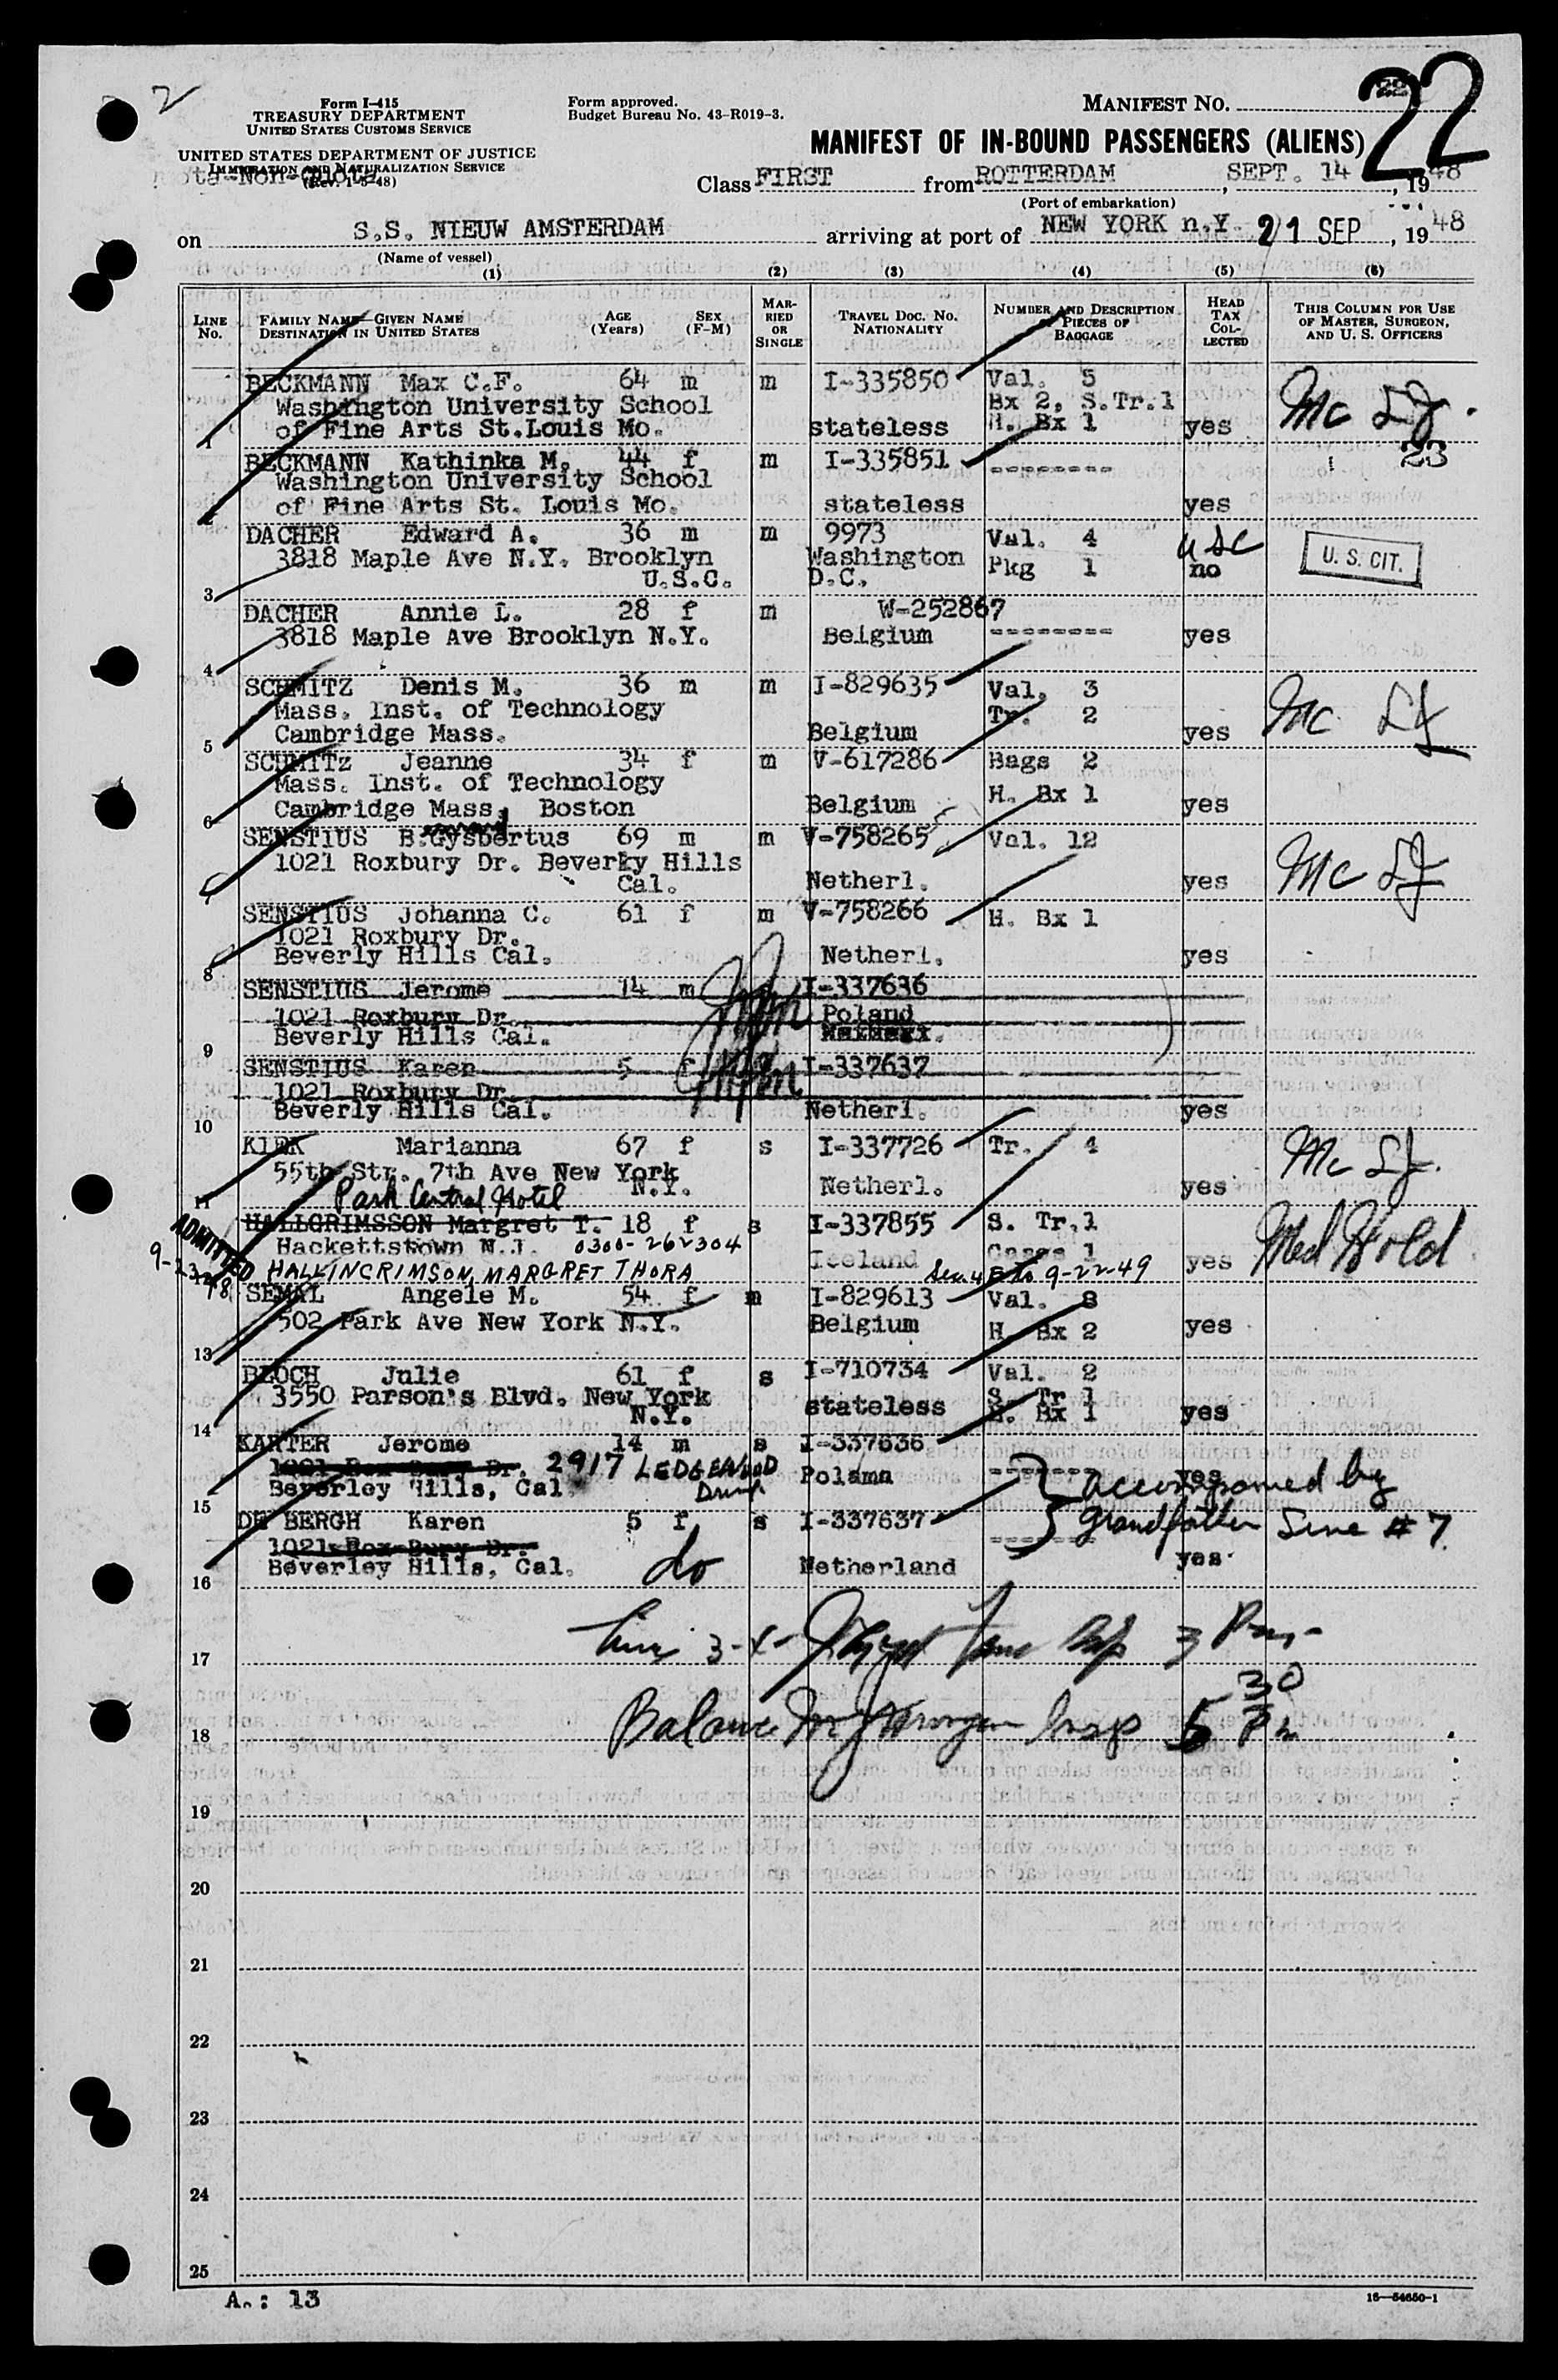 2
22
Form I-415
TREASURY DEPARTMENT
UNITED STATES CUSTOMS SERVICE
UNITED STATES DEPARTMENT OF JUSTICE
IMMIGRATION AND NATURALIZATION SERVICE
(Rev. 1-5-48)
Form approved.
Budget Bureau No. 43-R019-3.
MANIFEST NO.
MANIFEST OF IN-BOUND PASSENGERS (ALIENS)
Class FIRST from ROTTERDAM, SEPT. 14, 1948
(Port of embarkation)
on S.S. NIEUW AMSTERDAM arriving at port of NEW YORK n.Y. 21 SEP, 1948
(Name of vessel)
(1) (2) (3) (4) (5) (6)
LINE No. FAMILY NAME—GIVEN NAME DESTINATION IN UNITED STATES AGE (Years) SEX (F-M) MARRIED OR SINGLE TRAVEL DOC. NO. NATIONALITY NUMBER AND DESCRIPTION OF PIECES OF BAGGAGE HEAD TAX COLLECTED THIS COLUMN FOR USE OF MASTER, SURGEON, AND U. S. OFFICERS
BECKMANN Max C.F. 64 m m I-335850 Val. 5
Washington University School Bx 2, S.Tr.1
1 of Fine Arts St.Louis Mo. stateless H. Bx 1 yes
BECKMANN Kathinka M. 44 f m I-335851 -------- 23
Washington University School
2 of Fine Arts St. Louis Mo. stateless yes
DACHER Edward A. 36 m m 9973 Val. 4 USC
3818 Maple Ave N.Y. Brooklyn Washington Pkg 1 no U. S. CIT.
3 U.S.C. D.C.
DACHER Annie L. 28 f m W-252867
3818 Maple Ave Brooklyn N.Y. Belgium -------- yes
4
SCHMITZ Denis M. 36 m m I-829635 Val. 3
Mass. Inst. of Technology Tr. 2
5 Cambridge Mass. Belgium yes
SCHMITz Jeanne 34 f m V-617286 Bags 2
Mass. Inst. of Technology H. Bx 1
6 Cambridge Mass. Boston Belgium yes
SENSTIUS B.Gysbertus 69 m m V-758265 Val. 12
1021 Roxbury Dr. Beverly Hills
7 Cal. Netherl. yes
SENSTIUS Johanna C. 61 f m V-758266 H. Bx 1
1021 Roxbury Dr.
8 Beverly Hills Cal. Netherl. yes
SENSTIUS Jerome 14 m I-337636
1021 Roxbury Dr. Poland
9 Beverly Hills Cal. Netherl.
SENSTIUS Karen 5 f I-337637
1021 Roxbury Dr.
10 Beverly Hills Cal. Netherl. yes
KIEK Marianna 67 f s I-337726 Tr. 4
55th Str. 7th Ave New York
11 N.Y. Netherl. yes
Park Central Hotel
HALLGRIMSSON Margret T. 18 f s I-337855 S. Tr.1
Hackettstown N.J. 0300-262304 Iceland Cases 1 yes Med Hold
ADMITTED
12 HALLINCRIMSON, MARGRET THORA 9-22-49
SEMAL Angele M. 54 f m I-829613 Val. 8
502 Park Ave New York N.Y. Belgium H. Bx 2 yes
13
BLOCH Julie 61 f s I-710734 Val. 2
3550 Parson's Blvd. New York stateless S. Tr 1
14 N.Y. H. Bx 1 yes
KARTER Jerome 14 m s I-337636
Dr. 2917 LEDGEWOOD Drive Polamn -------- yes accompanied by
15 Beverley Hills, Cal.
DE BERGH Karen 5 f s I-337637 Grandfather Line #7
1021 Rox Bury Dr. --------
16 Beverley Hills, Cal. do Netherland yes
17
Balance
18
19
20
21
22
23
24
25
A.: 13
16—54650-1